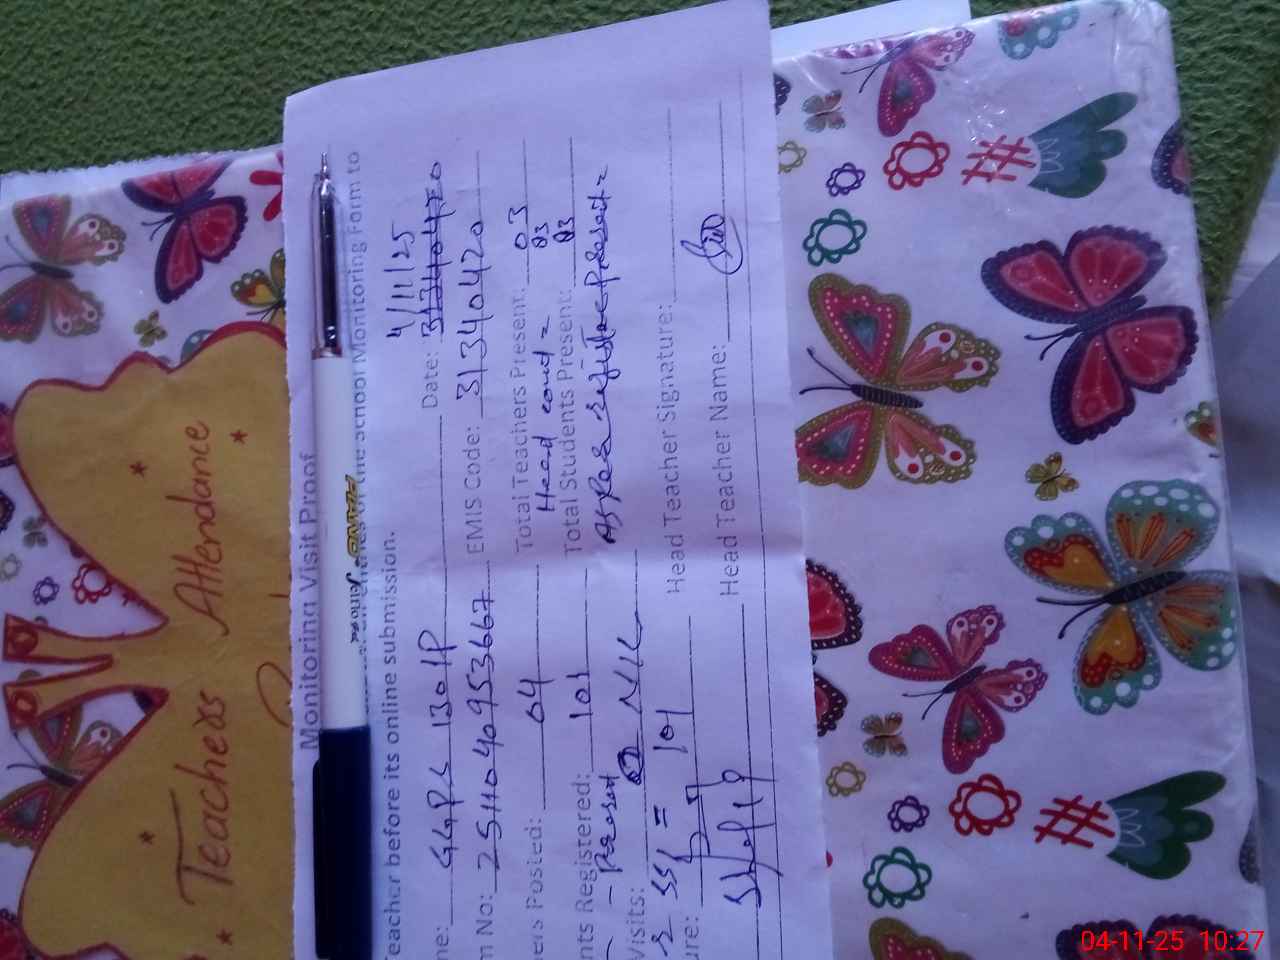 Teachers Attendance
Monitoring Visit Proof
the School Monitoring Form to
Teacher before its online submission.
4/11/25
ne: GGPS 130 1P Date:
m No: 25111040953667 EMIS Code: 31340420
ers Posted: 04 Total Teachers Present: 03
Head count = 83
nts Registered: 101 Total Students Present: 83
Present As per register present =
Visits: NIL
SSI = 101 Head Teacher Signature:
ure:
Head Teacher Name:
PIANO
04-11-25 10:27